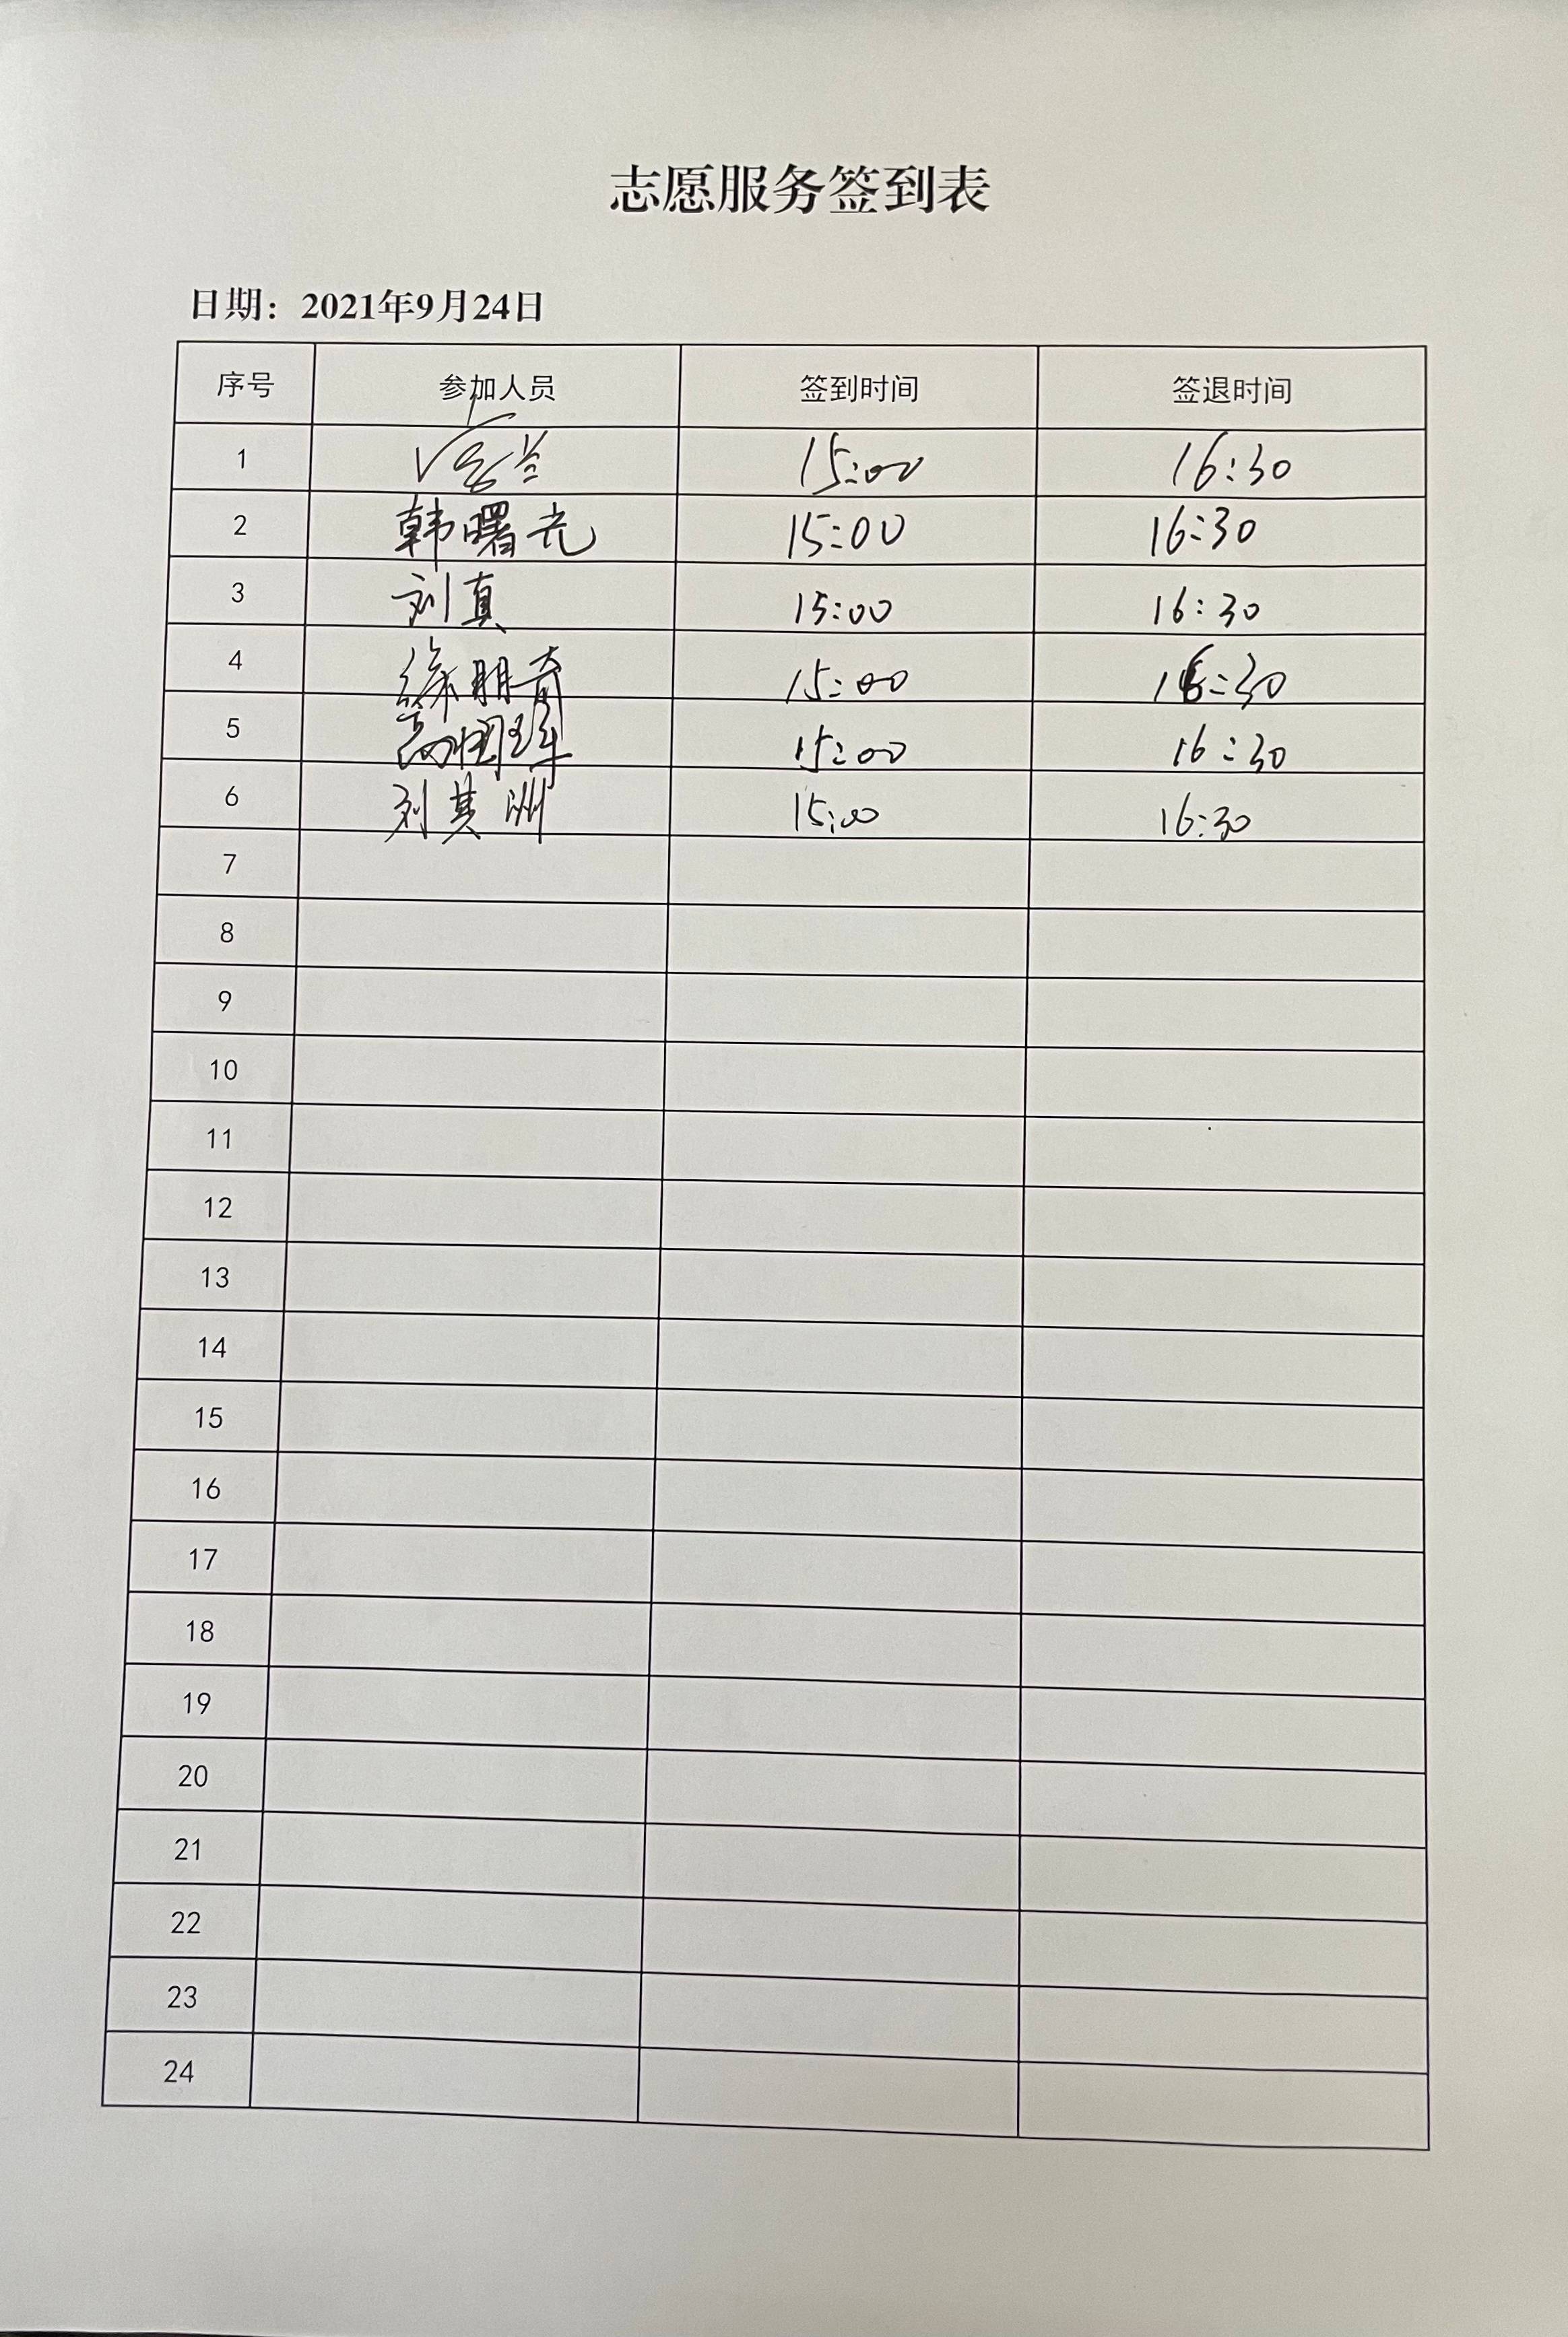 志愿服务签到表
日期：2021年9月24日
序号 参加人员 签到时间 签退时间
1 15:00 16:30
2 韩曙光 15:00 16:30
3 刘真 15:00 16:30
4 徐朋奇 15:00 16:30
5 高国峰 15:00 16:30
6 刘其洲 15:00 16:30
7
8
9
10
11
12
13
14
15
16
17
18
19
20
21
22
23
24